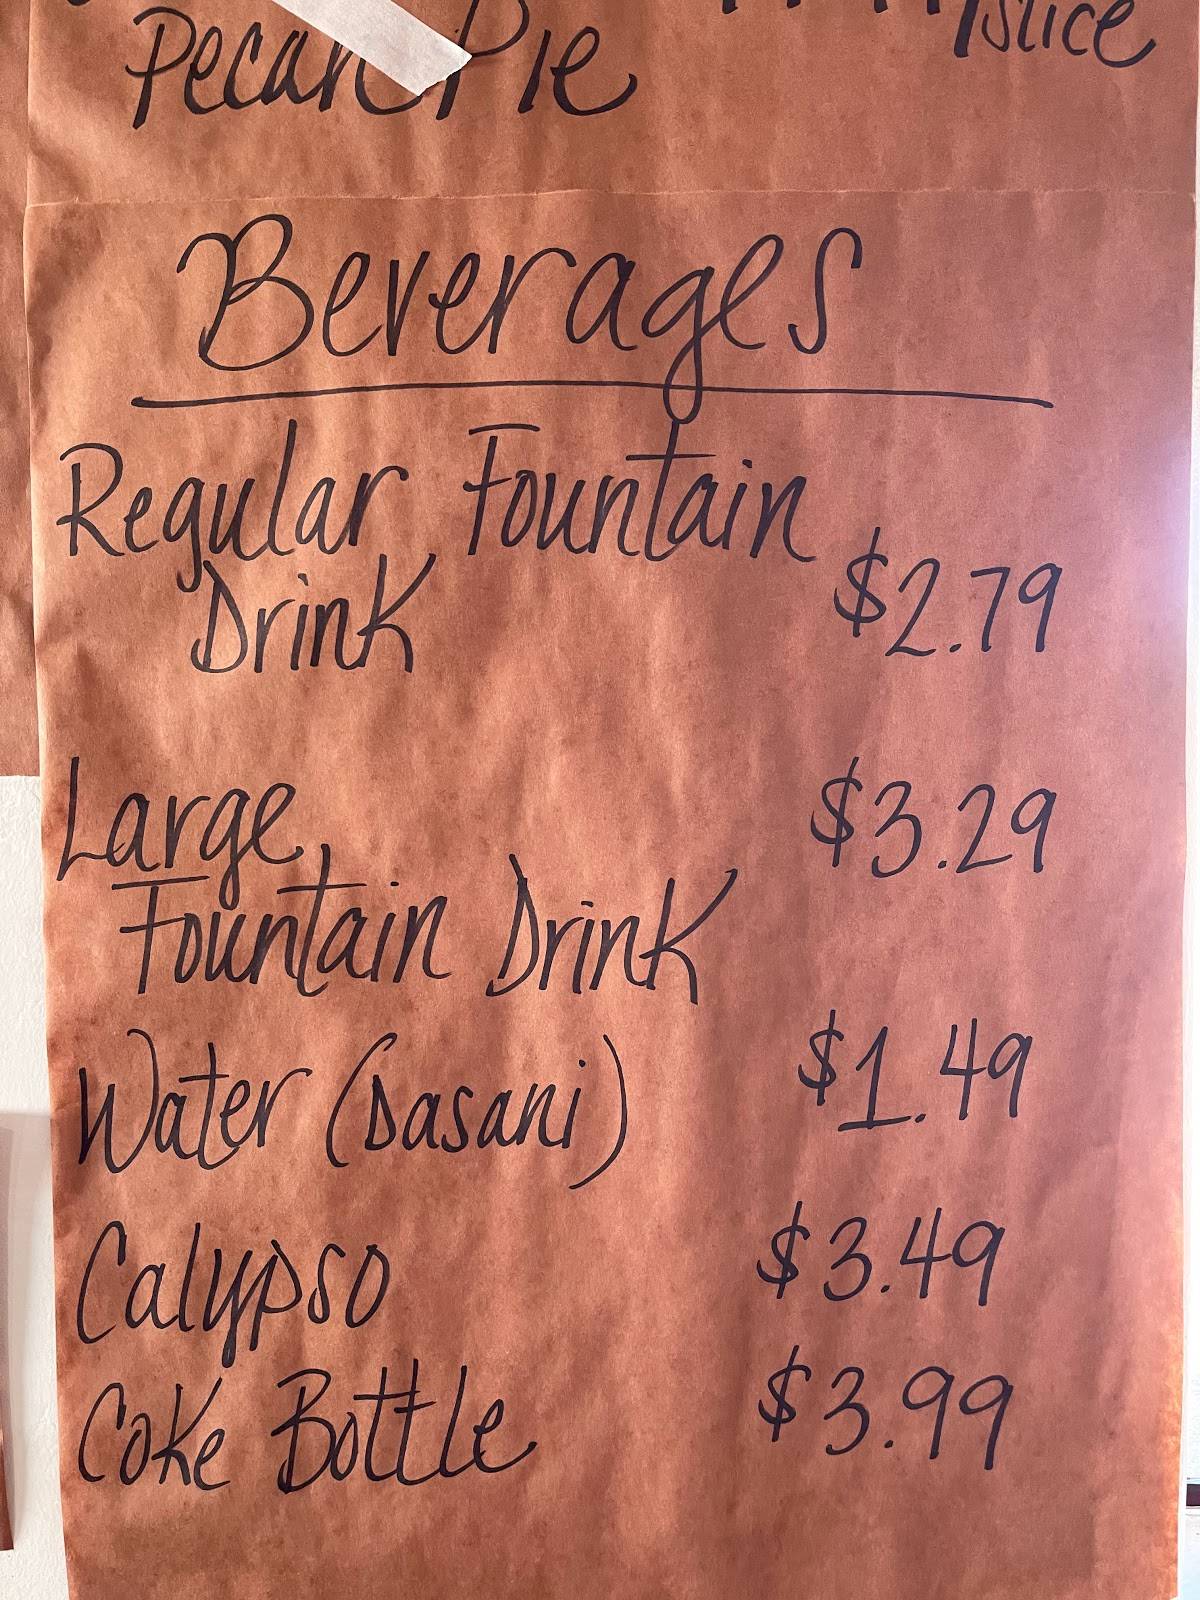 Pecan Pie /slice
Beverages
Regular Fountain
Drink $2.79
Large $3.29
Fountain Drink
Water (Dasani) $1.49
Calypso $3.49
Coke Bottle $3.99